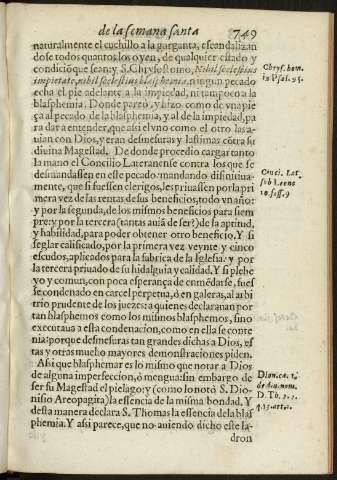 de la semana santa
749
naturalmente el cuchillo a la garganta, escandalizan
dose todos quantos los oyen, de qualquier estado y
condiciõ que sean: y S. Chrysostomo, Nihil scelestius
impietate, nihil scelestius blasphemia, ningun pecado
echa el pie adelante a la impiedad, ni tampoco a la
blasphemia. Donde pareõ, y hizo como de vna pie
ça al pecado de la blasphemia, y al de la impiedad, pa
ra dar a entender, que assi el vno como el otro las a-
uian con Dios, y eran desmesuras y lastimas cõtra su
diuina Magestad. De donde procedio cargar tanto
la mano el Concilio Lateranense contra los que se
desmandassen en este pecado: mandando disinitiua-
mente, que si fuessen clerigos, les priuassen por la pri
mera vez de las rentas de sus beneficios, todo vn año:
y por la segunda, de los mismos beneficios para siem
pre: y por la tercera (tantas auiã de ser?) de la aptitud,
y habilidad, para poder obtener otro beneficio. Y si
seglar calificado, por la primera vez veynte y cinco
escudos, aplicados para la fabrica de la Iglesia: y por
la tercera priuado de su hidalguia y calidad. Y si plebe
yo y comun, con poca esperança de enmẽdarse, fues
se condenado en carcel perpetua, ò en galeras, al arbi
trio prudente de los juezes: a quienes declarauan por
tan blasphemos como los mismos blasphemos, sino
executaua a esta condenacion, como en ella se conte
nia: porque desmesuras tan grandes dichas a Dios, es
tas y otras mucho mayores demonstraciones piden.
Assi que blasphemar es lo mismo que notar a Dios
de alguna imperfeccion, ò mengua: sin embargo de
ser su Magestad el pielago: y (como lo notó S. Dio-
nisio Areopagita) la essencia de la misma bondad. Y
desta manera declara S. Thomas la essencia de la blas
phemia. Y assi parece, que no auiendo dicho este la-
dron
Chrys. hom.
in Psal. 95.
Conci. Lat.
sub Leone
10. sess. 9
Dion. ca. 1.
de diu. nom.
D. Th. 2. 2.
q. 13. art. 1.